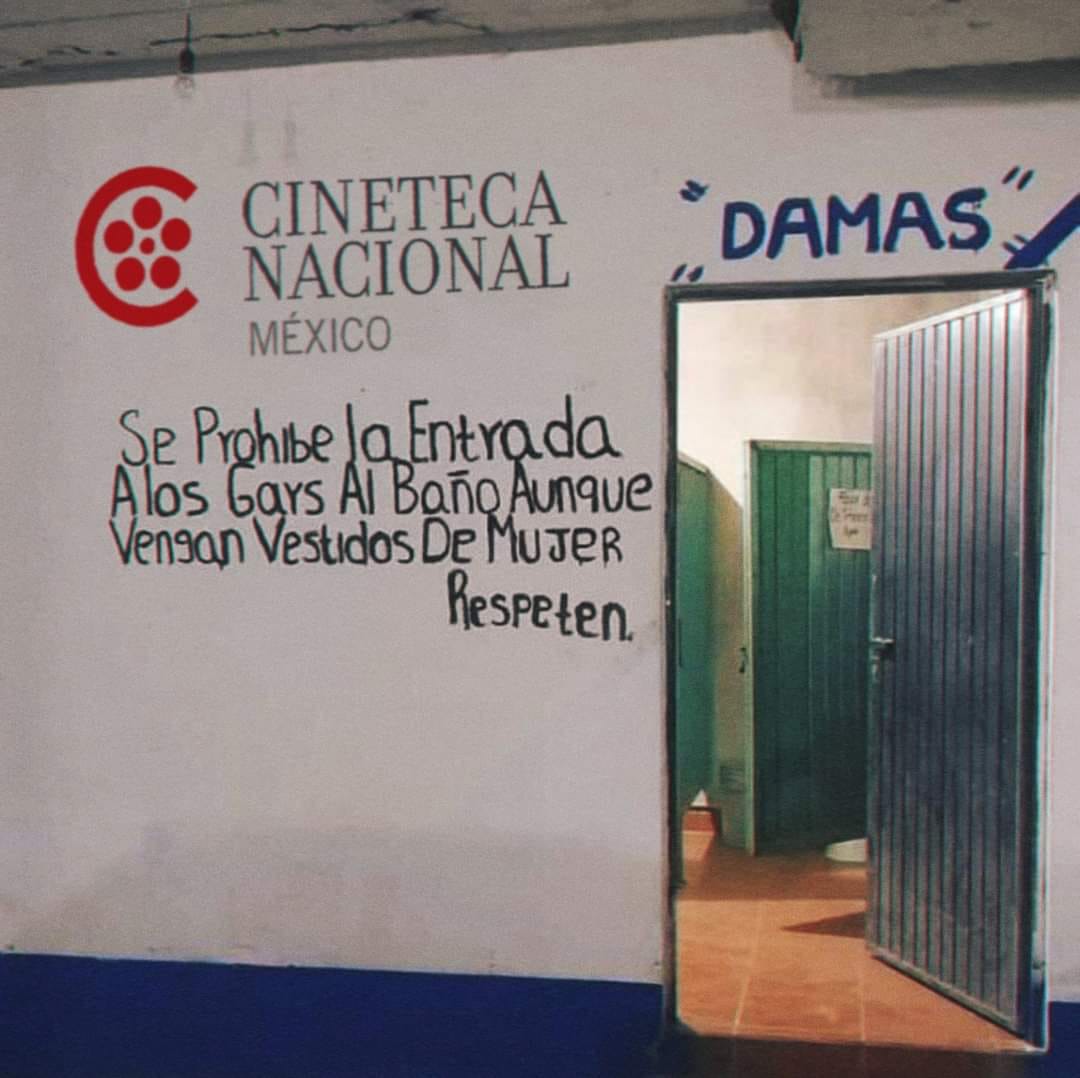 CINETECA
NACIONAL
MÉXICO
"DAMAS"
Se Prohibe la Entrada
A los Gays Al Baño Aunque
Vengan Vestidos De Mujer
Respeten.